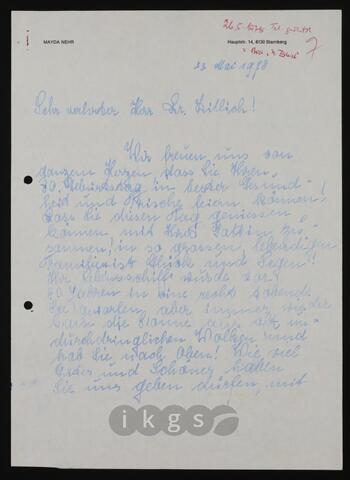 MAYDA NEHR
Hauptstr. 14, 8130 Starnberg
23 Mai 1978
Sehr verehrter Herr Dr. Zillich!
Wir freuen uns von
ganzem Herzen dass Sie Ihren
80. Geburtstag in bester Gesund-
heit und Frische feiern können!
Dass Sie diesen Tag geniessen
können mit Ihrer Gattin zu-
sammen! in so grossem, lebendigen
Familien Glück und Segen!
Ihr Lebensschiff wurde vor
40 Jahren in eine recht tobende
See geworfen, aber immer wieder
kam die Sonne
durchdringlichen Wolken und
hob Sie nach oben! Wie viel
Gutes und Schönes haben
Sie uns geben dürfen, mit
ikgs